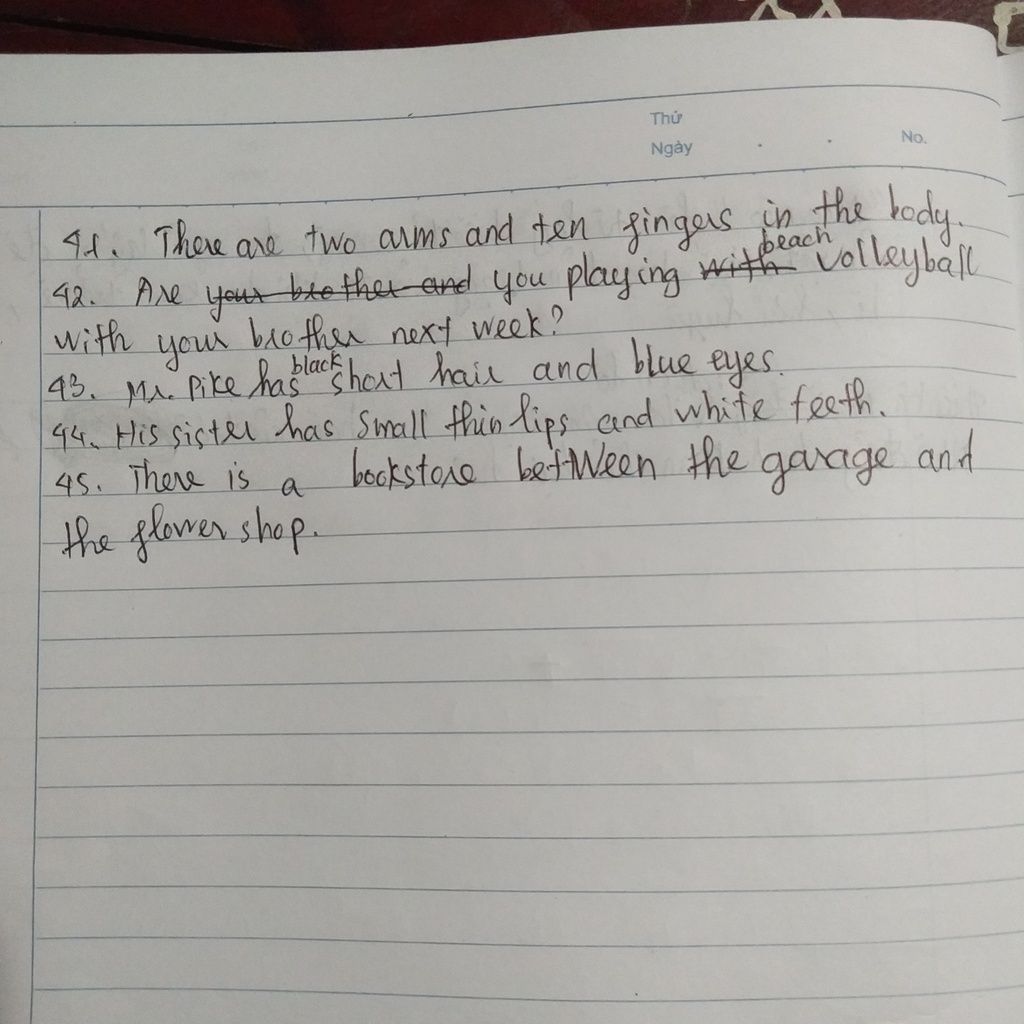 Thứ
Ngày . . No.
41. There are two arms and ten fingers in the body.
42. Are your brother and you playing with beach volleyball
with your brother next week?
43. Mr. Pike has black short hair and blue eyes.
44. His sister has small thin lips and white teeth.
45. There is a bookstore between the garage and
the flower shop.